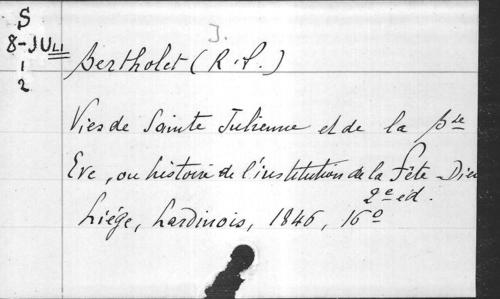 S
8-JULI
1
2
J.
Bertholet (R.P.)
Vies de Sainte Julienne et de la Bse
Eve, ou histoire de l'institution de la Fête-Dieu
2e éd.
Liége, Lardinois, 1846, 16°